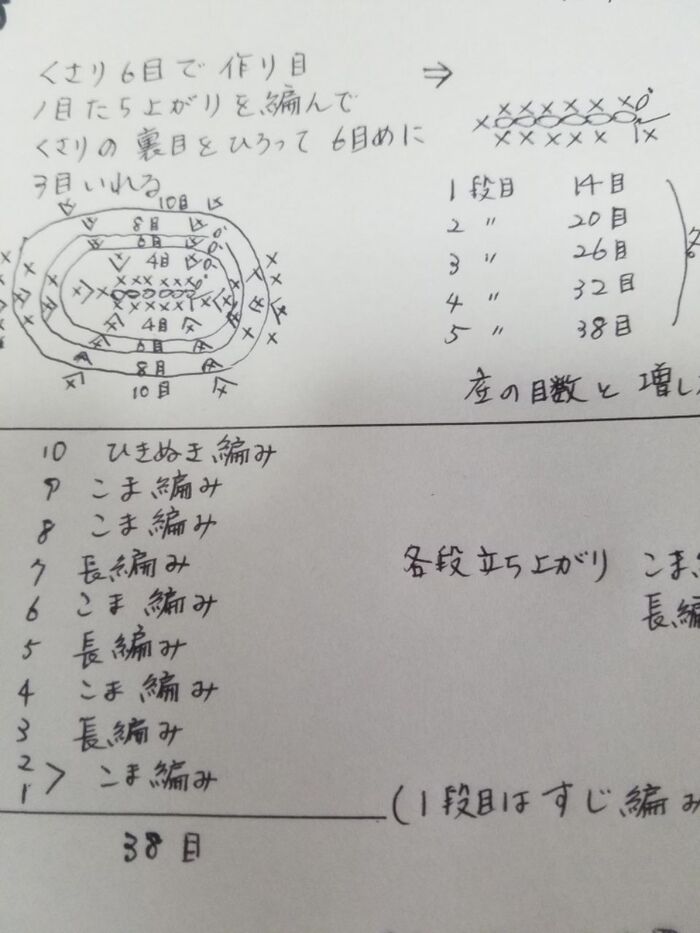 くさり6目で作り目
1目たち上がりを編んで
くさりの裏目をひろって6目めに
3目いれる
⇒
1段目 14目
2 〃 20目
3 〃 26目
4 〃 32目
5 〃 38目
各
10目
8目
6目
4目
4目
6目
8目
10目
底の目数と増し
10 ひきぬき編み
9 こま編み
8 こま編み
7 長編み
6 こま編み
5 長編み
4 こま編み
3 長編み
2
1 > こま編み
各段立ち上がり こま
長編
(1段目はすじ編み
38目